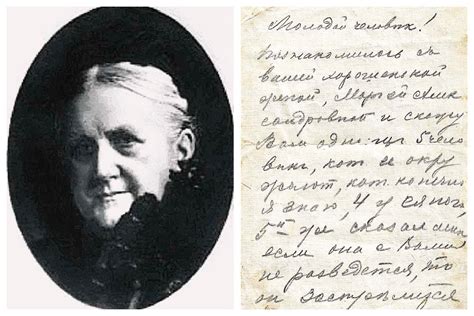 Молодой человѣк!
познакомилась съ
вашей хорошенькой
женой, Марьей Алек
сандровной и скажу
Вам одно: из 5 чело
вѣк, кот. ея окру
жают, кот. конечно
я знаю, 4 у ея ног,
5ый же сказал мне
если она с Вами
не разведется, то
он застрелится